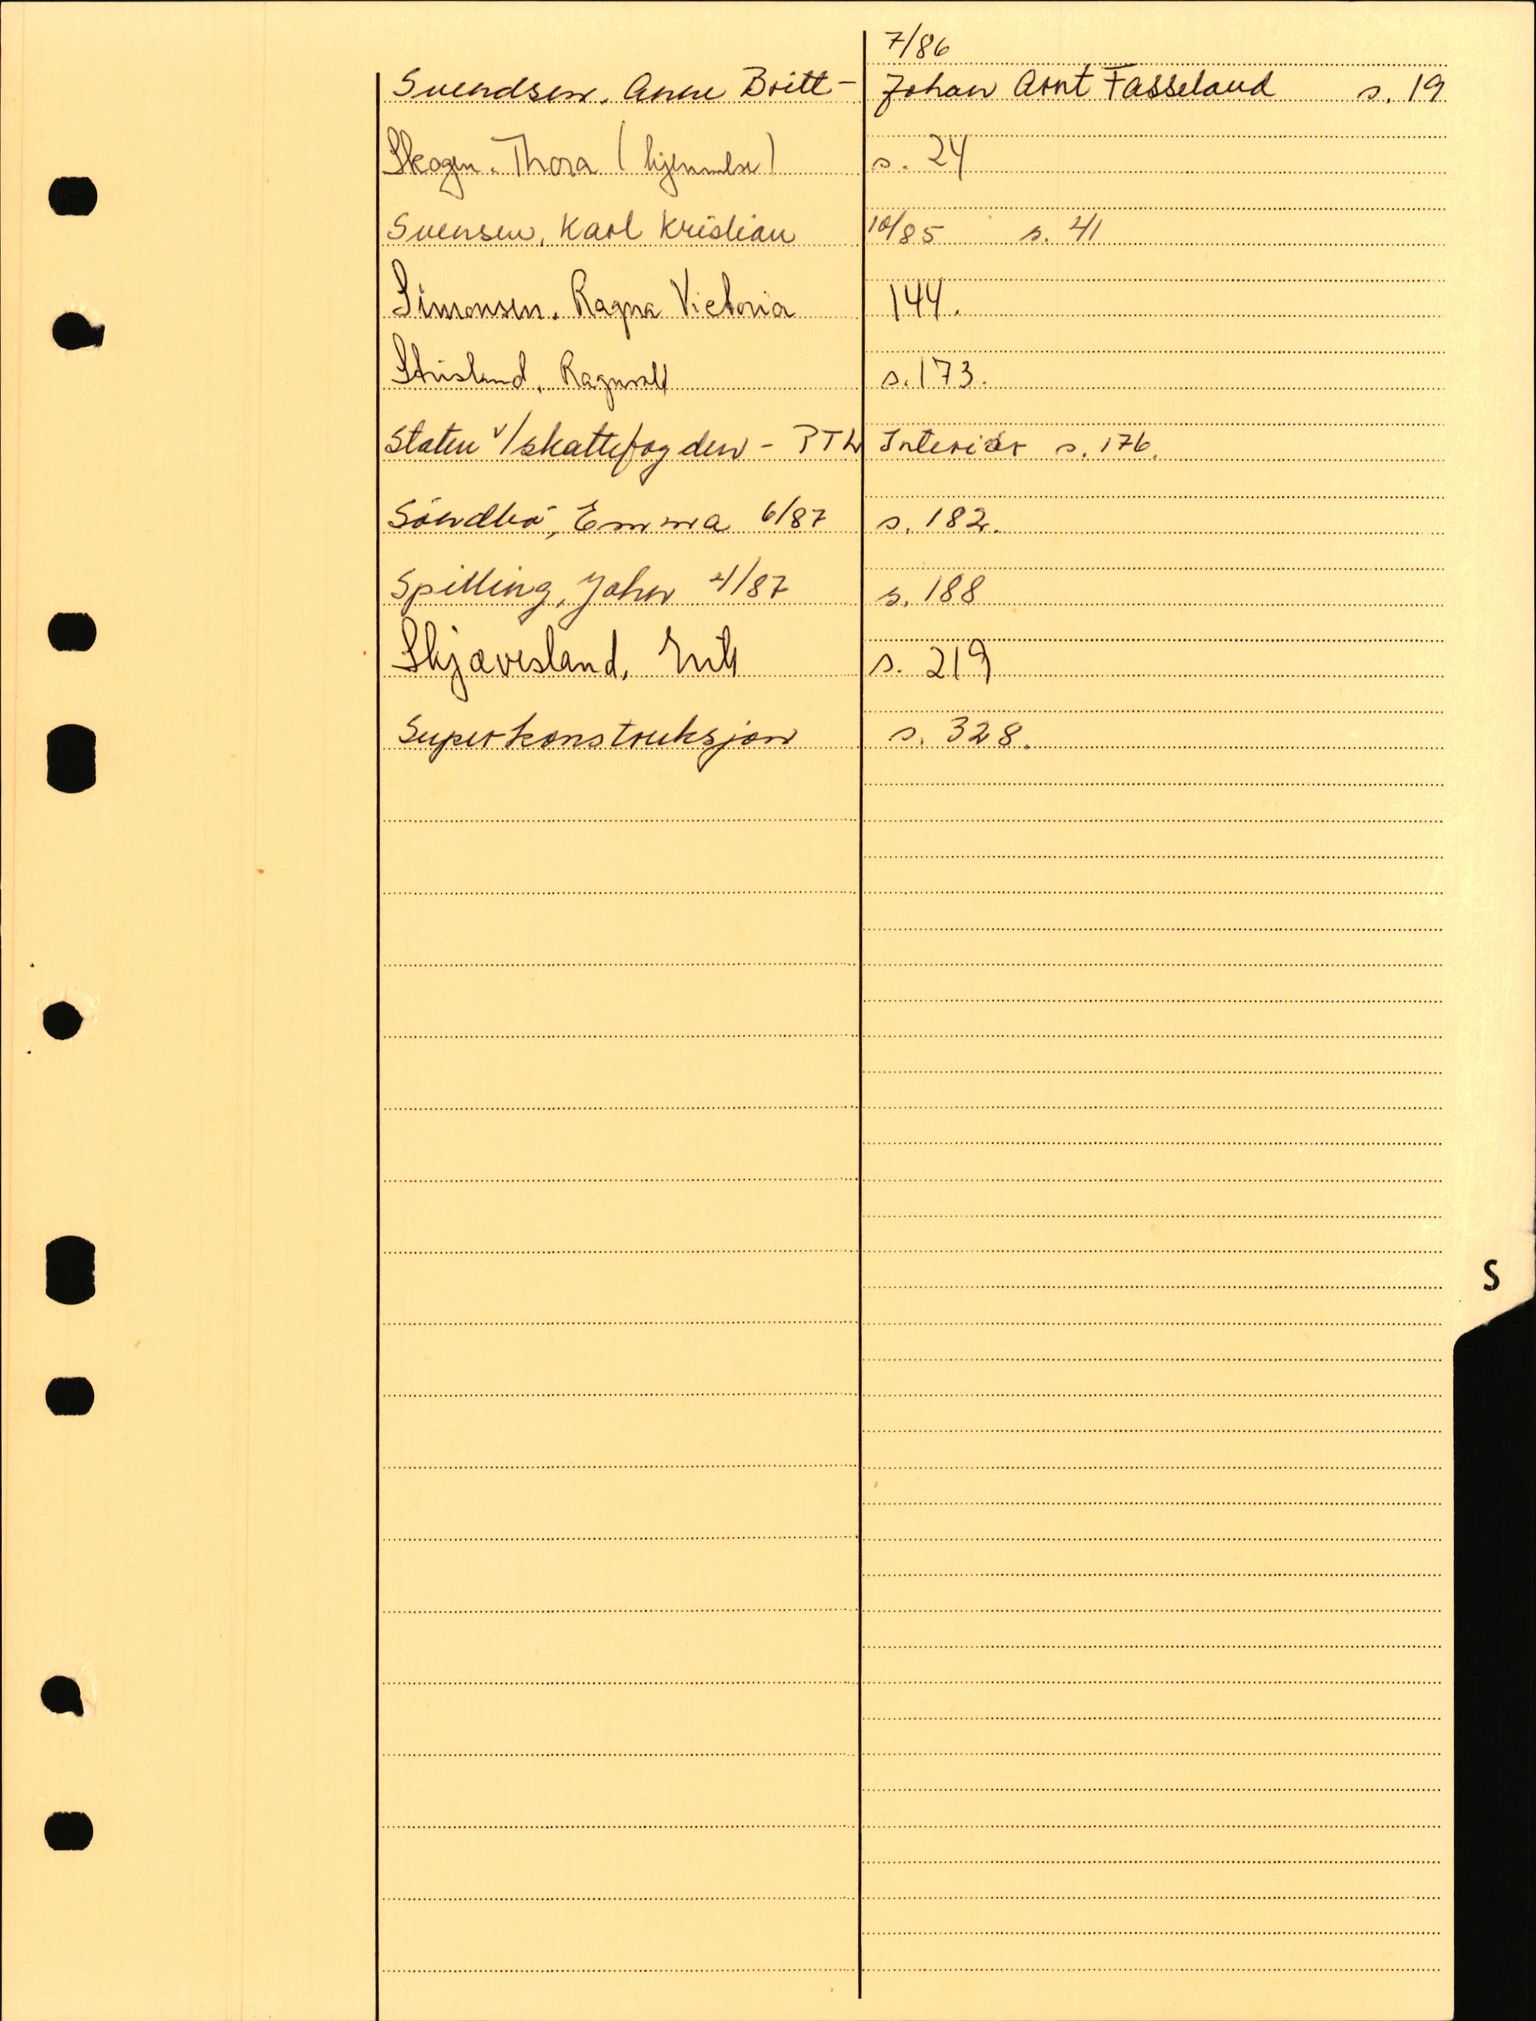 7/86
Svendsen, Anne Britt - Johan Arnt Fasseland s. 19
Skogen, Thora (hjemmelse) s. 24
Svensen, Karl Kristian 10/85 s. 41
Simonsen, Ragna Victoria 144.
Strisland, Ragnvald s. 173.
Staten v/skattefogden - PTL Interiör s. 176.
Söndbö, Emma 6/87 s. 182.
Spilling, John 4/87 s. 188
Skjævesland, Erik s. 219
Superkonstruksjon s. 328.
S